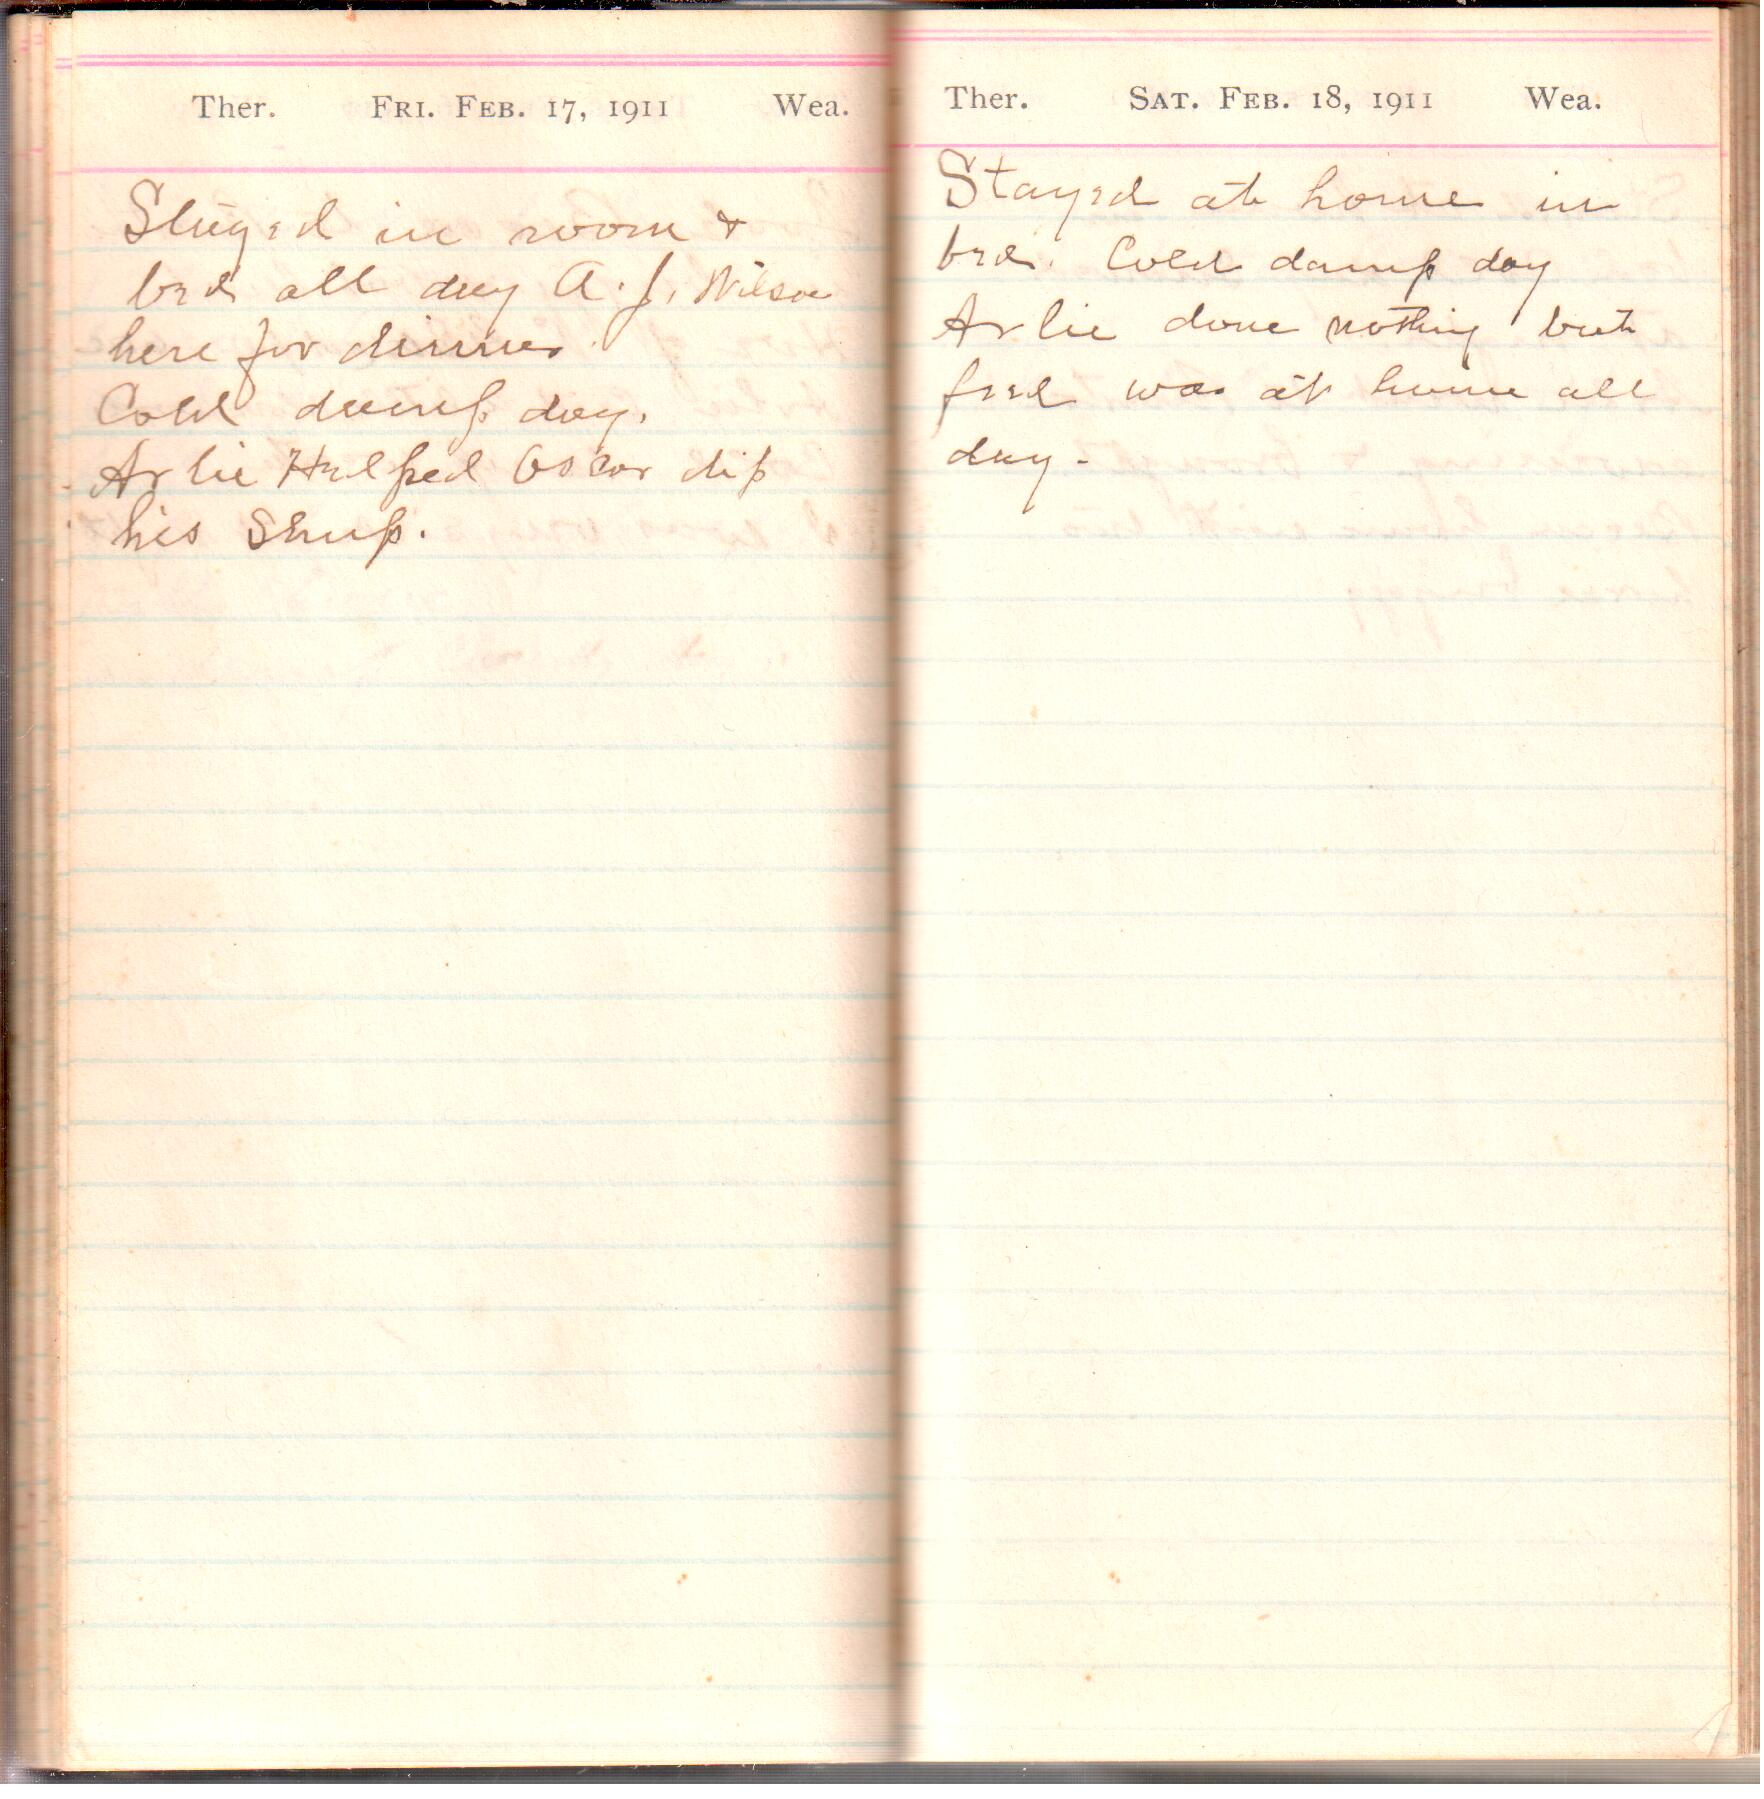 Ther. Fri. Feb. 17, 1911 Wea.
Stayed in room &
bed all day A. J. Wilson
here for dinner.
Cold damp day.
Arlie Helped Oscar dip
his Sheep.
Ther. Sat. Feb. 18, 1911 Wea.
Stayed at home in
bed. Cold damp day
Arlie done nothing but
feed was at home all
day-